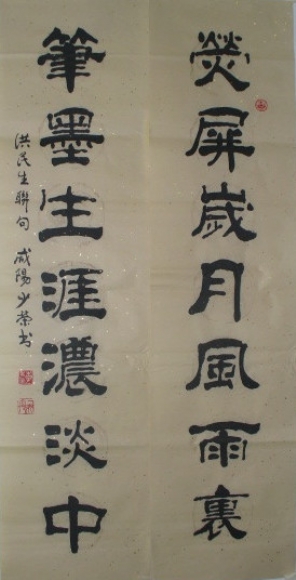 熒屏歲月風雨裏
筆墨生涯濃淡中
洪民生聯句 咸陽少榮书